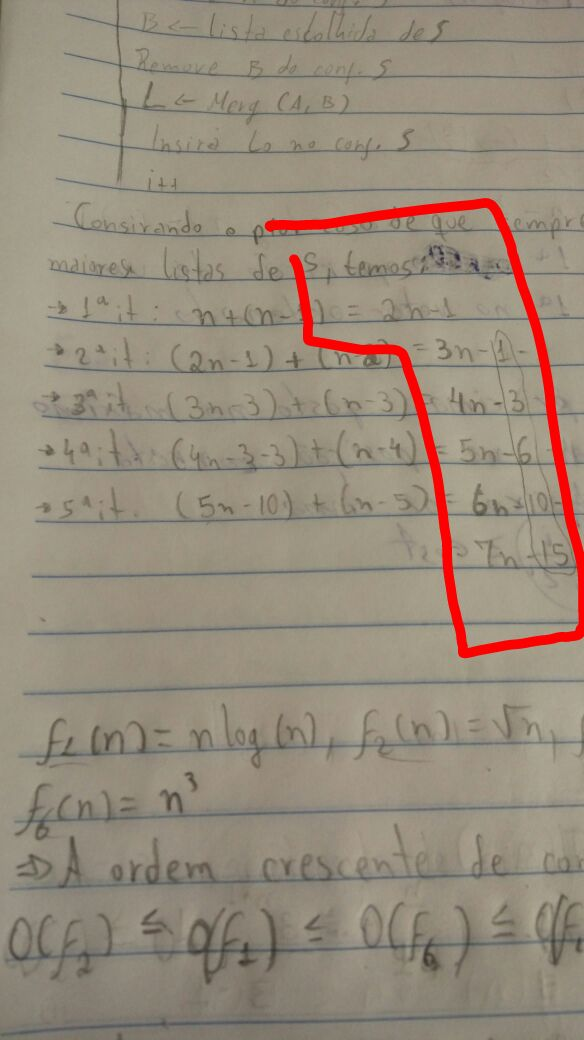 B ← lista escolhida de S
Remove B do conj. S
L ← Merg (A, B)
Insira L no conj. S
i++
Consirando o caso de que sempre
maiores listas de S, temos:
→ 1ª it: n+(n-1) = 2n-1
→ 2ª it: (2n-1) + (n-2) = 3n-1-
→ 3ª it (3n-3) + (n-3) = 4n-3
→ 4ª it: (4n-3-3) + (n-4) = 5n-6
→ 5ª it. (5n-10) + (n-5) = 6n-10-
7n-15
f₁(n)= n log(n), f₂(n) = √n,
f₆(n)= n³
⇒ A ordem crescente de
O(f₂) ≤ O(f₁) ≤ O(f₆) ≤